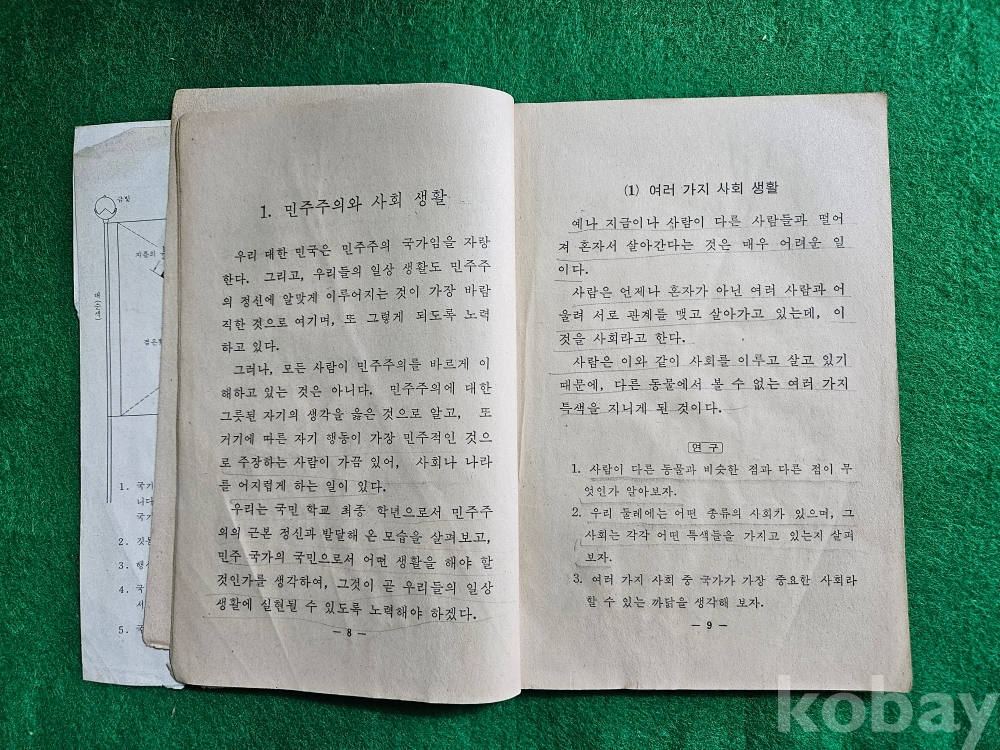 금빛
지름의
대(순색)
검은
1. 국기
니다
국기
2. 깃
3. 행
4. 국
세
5. 국
1. 민주주의와 사회 생활
우리 대한 민국은 민주주의 국가임을 자랑
한다. 그리고, 우리들의 일상 생활도 민주주
의 정신에 알맞게 이루어지는 것이 가장 바람
직한 것으로 여기며, 또 그렇게 되도록 노력
하고 있다.
그러나, 모든 사람이 민주주의를 바르게 이
해하고 있는 것은 아니다. 민주주의에 대한
그릇된 자기의 생각을 옳은 것으로 알고, 또
거기에 따른 자기 행동이 가장 민주적인 것으
로 주장하는 사람이 가끔 있어, 사회나 나라
를 어지럽게 하는 일이 있다.
우리는 국민 학교 최종 학년으로서 민주주
의의 근본 정신과 발달해 온 모습을 살펴보고,
민주 국가의 국민으로서 어떤 생활을 해야 할
것인가를 생각하여, 그것이 곧 우리들의 일상
생활에 실현될 수 있도록 노력해야 하겠다.
— 8 —
(1) 여러 가지 사회 생활
예나 지금이나 사람이 다른 사람들과 떨어
져 혼자서 살아간다는 것은 매우 어려운 일
이다.
사람은 언제나 혼자가 아닌 여러 사람과 어
울려 서로 관계를 맺고 살아가고 있는데, 이
것을 사회라고 한다.
사람은 이와 같이 사회를 이루고 살고 있기
때문에, 다른 동물에서 볼 수 없는 여러 가지
특색을 지니게 된 것이다.
연 구
1. 사람이 다른 동물과 비슷한 점과 다른 점이 무
엇인가 알아보자.
2. 우리 둘레에는 어떤 종류의 사회가 있으며, 그
사회는 각각 어떤 특색들을 가지고 있는지 살펴
보자.
3. 여러 가지 사회 중 국가가 가장 중요한 사회라
할 수 있는 까닭을 생각해 보자.
— 9 —
kobay